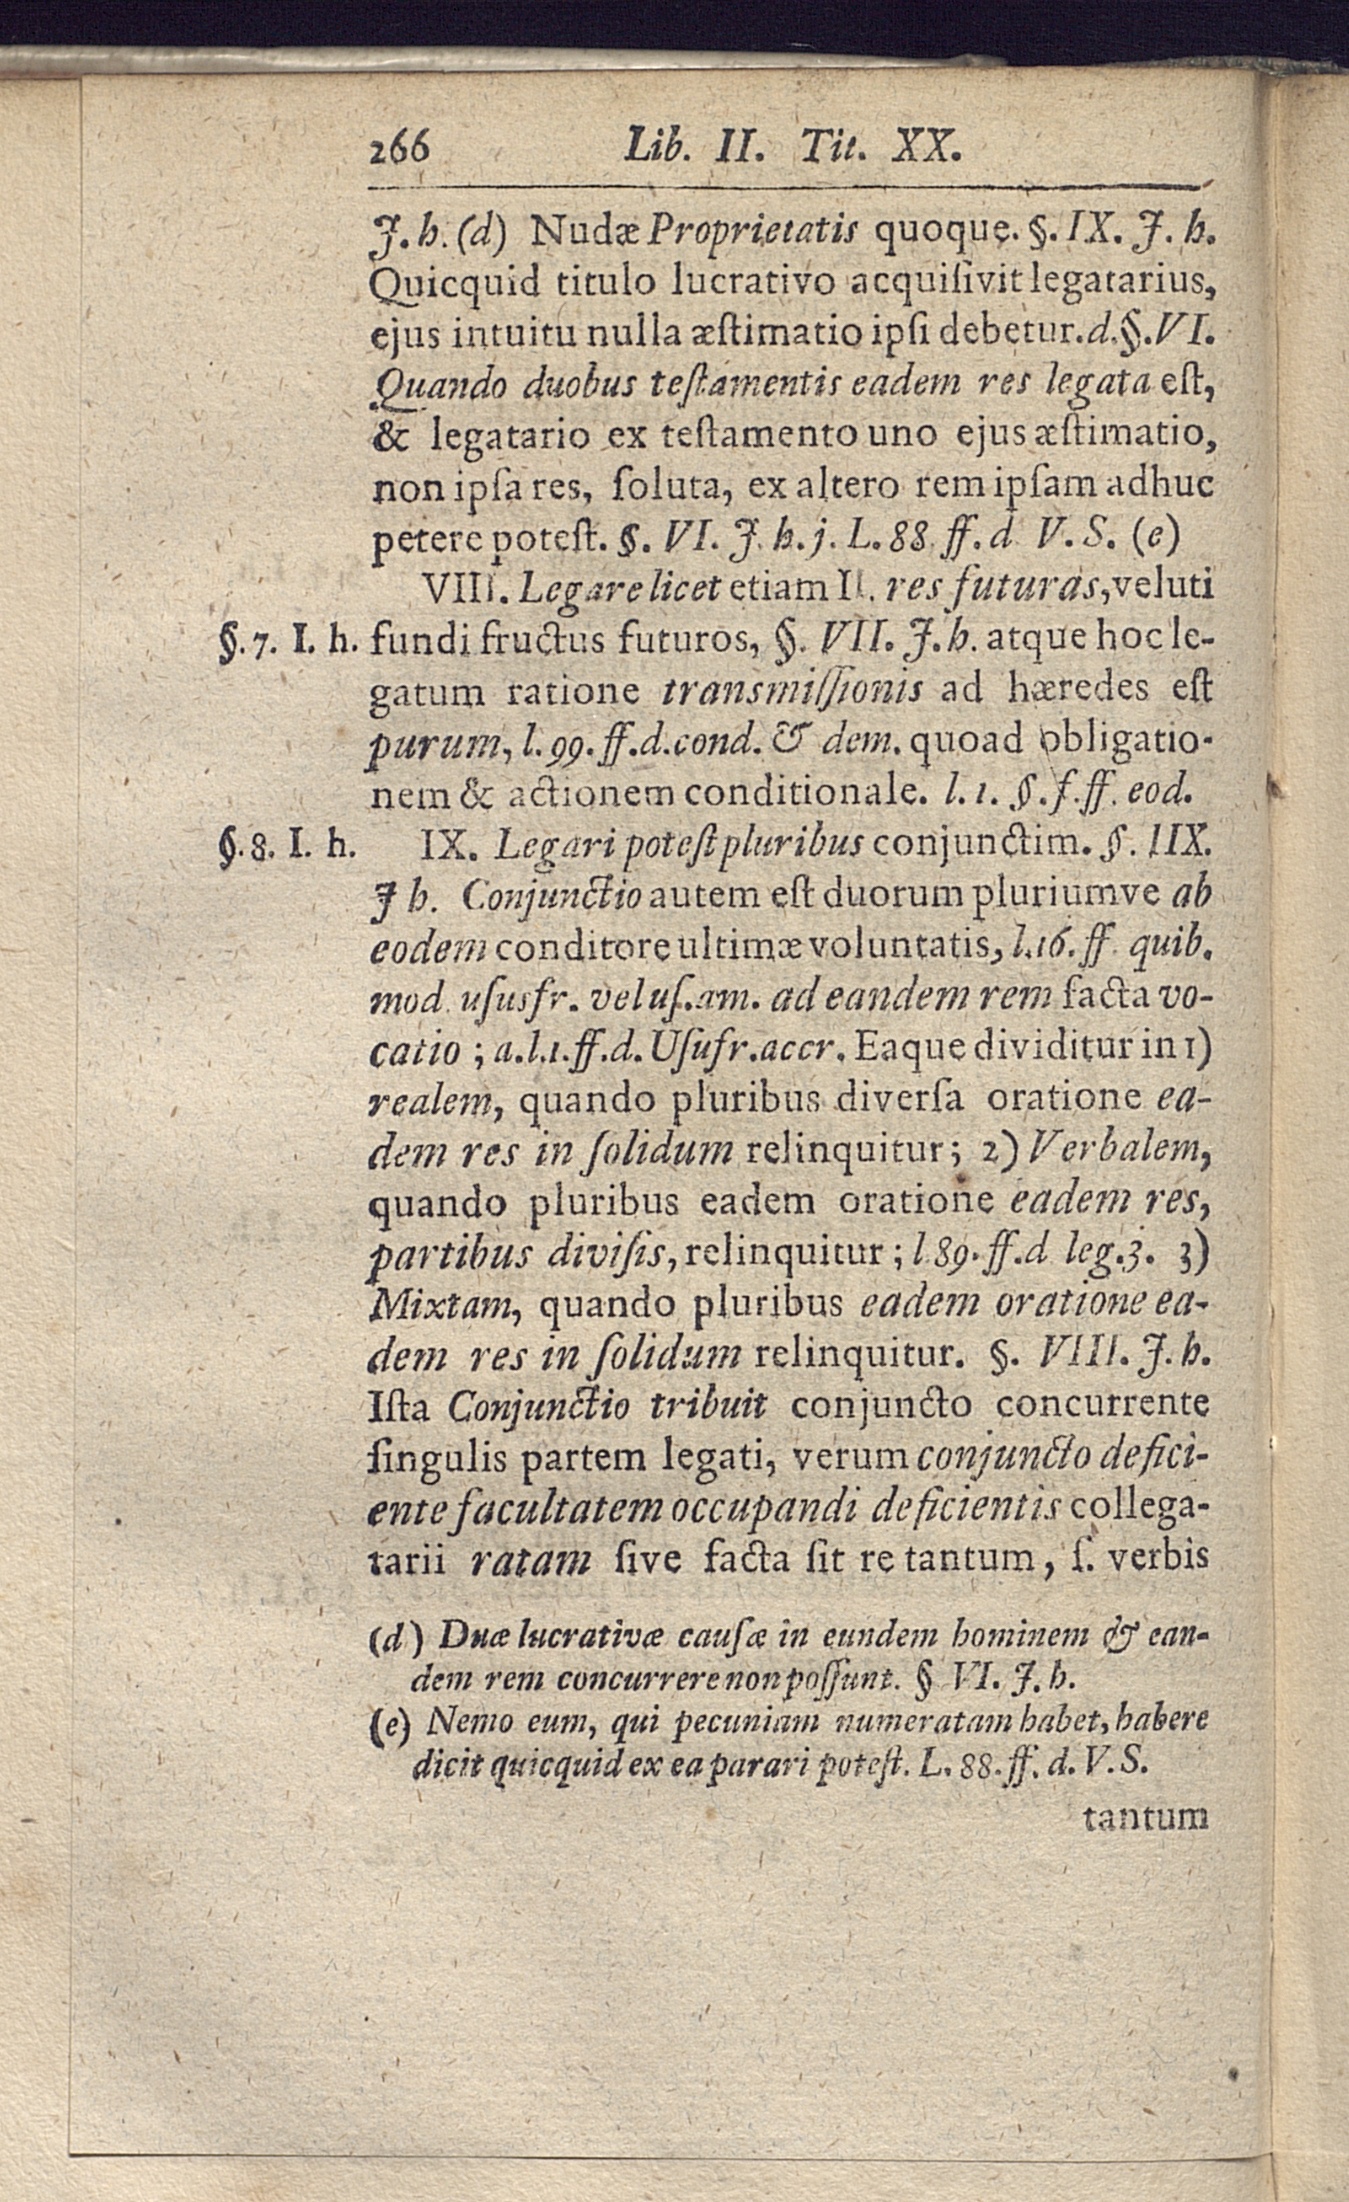 266 Lib. II. Tit. XX.
J. h. (d) Nudæ Proprietatis quoque. §. IX. J. h.
Quicquid titulo lucrativo acquiſivit legatarius,
ejus intuitu nulla æſtimatio ipſi debetur. d. §. VI.
Quando duobus teſtamentis eadem res legata eſt,
& legatario ex teſtamento uno ejus æſtimatio,
non ipſa res, ſoluta, ex altero rem ipſam adhuc
petere poteſt. §. VI. J. h. j. L. 88 ff. d V. S. (e)
VIII. Legare licet etiam II. res futuras, veluti
§. 7. I. h. fundi fructus futuros, §. VII. J. h. atque hoc le-
gatum ratione transmiſſionis ad hæredes eſt
purum, l. 99. ff. d. cond. & dem. quoad obligatio-
nem & actionem conditionale. l. 1. §. f. ff. eod.
§. 8. I. h. IX. Legari poteſt pluribus conjunctim. §. IIX.
J h. Conjunctio autem eſt duorum pluriumve ab
eodem conditore ultimæ voluntatis, l. 16. ff. quib.
mod. uſusfr. vel uſ. am. ad eandem rem facta vo-
catio; a. l. 1. ff. d. Uſufr. accr. Eaque dividitur in 1)
realem, quando pluribus diverſa oratione ea-
dem res in ſolidum relinquitur; 2) Verbalem,
quando pluribus eadem oratione eadem res,
partibus diviſis, relinquitur; l 89. ff. d leg. 3. 3)
Mixtam, quando pluribus eadem oratione ea-
dem res in ſolidum relinquitur. §. VIII. J. h.
Iſta Conjunctio tribuit conjuncto concurrente
ſingulis partem legati, verum conjuncto defici-
ente facultatem occupandi deficientis collega-
tarii ratam ſive facta ſit re tantum, ſ. verbis
(d) Duæ lucrativæ cauſæ in eundem hominem & ean-
dem rem concurrere non poſſunt. § VI. J. h.
(e) Nemo eum, qui pecuniam numeratam habet, habere
dicit quicquid ex ea parari poteſt. L. 88. ff. d. V. S.
tantum